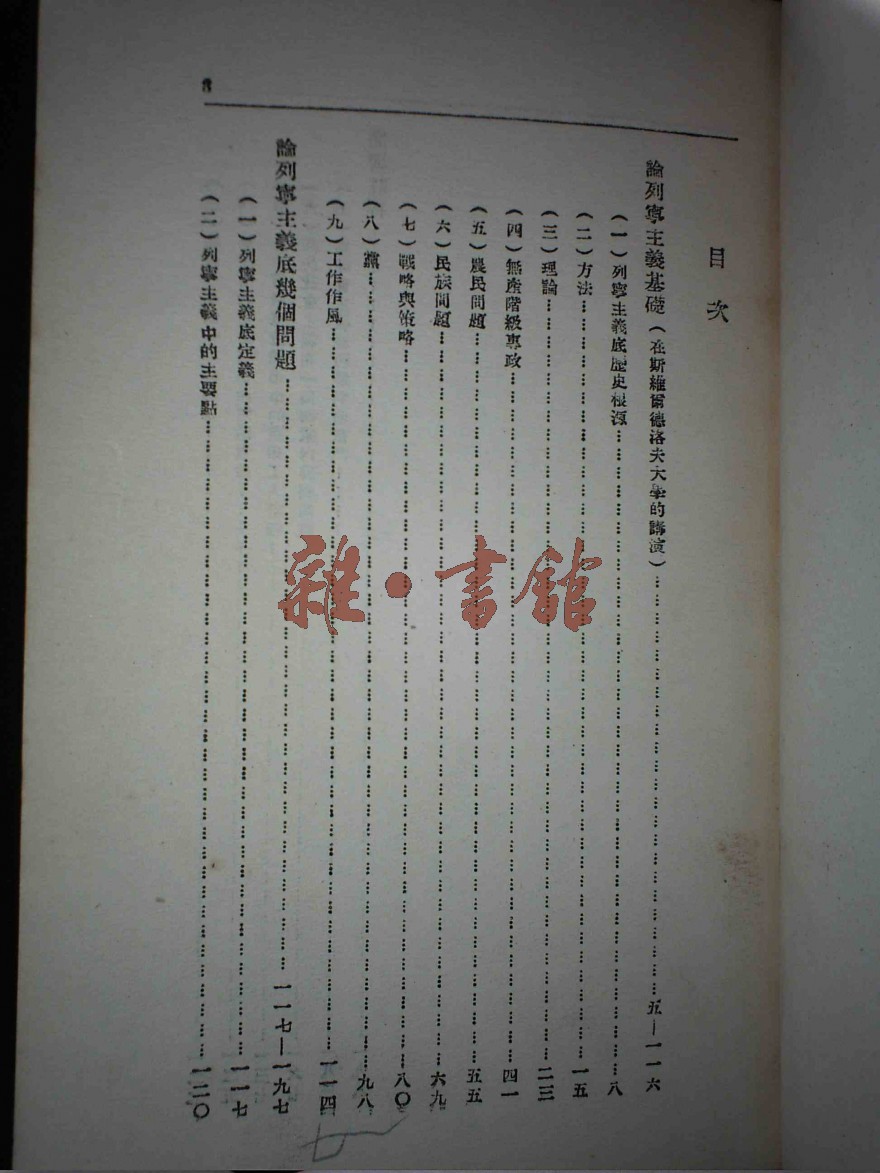 目次
論列寧主義基礎(在斯維爾德洛夫大學的講演)……五—一一六
(一)列寧主義底歷史根源……八
(二)方法……一五
(三)理論……二三
(四)無產階級專政……四一
(五)農民問題……五五
(六)民族問題……六九
(七)戰略與策略……八〇
(八)黨……九八
(九)工作作風……一一四
論列寧主義底幾個問題……一一七—一九七
(一)列寧主義底定義……一一七
(二)列寧主義中的主要點……一二〇
雜·書館